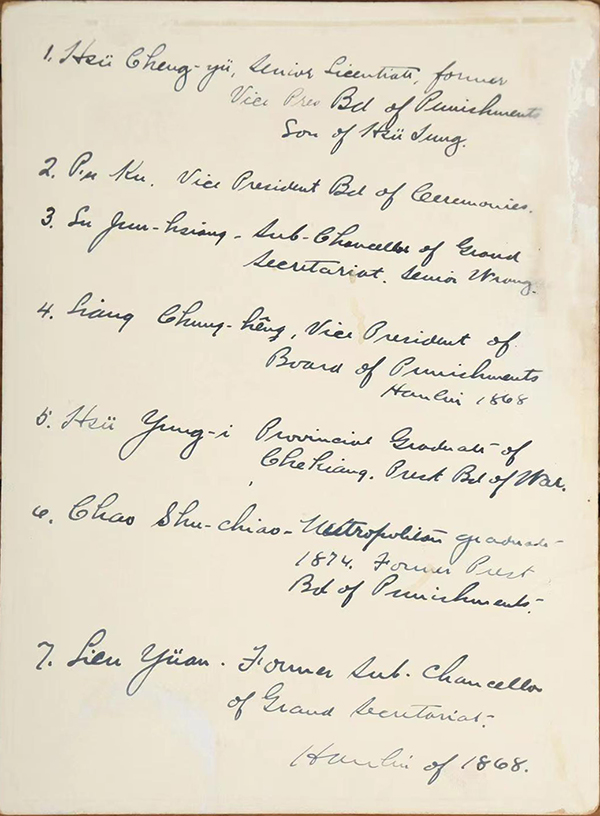 1. Hsü Cheng-yü, Senior Licentiate, former
Vice Pres Bd of Punishments
Son of Hsü Tung.
2. Pu Ku. Vice President Bd of Ceremonies.
3. Su Jun-hsiang - Sub-Chancellor of Grand
Secretariat. Senior Wrang.
4. Liang Chung-hêng, Vice President of
Board of Punishments
Hanlin 1868
5. Hsü Yung-i Provincial Graduate of
Chekiang. Prest Bd of War.
6. Chao Shu-chiao - Metropolitan graduate
1874. Former Prest
Bd of Punishments.
7. Lien Yüan. Former Sub-Chancellor
of Grand Secretariat.
Hanlin of 1868.